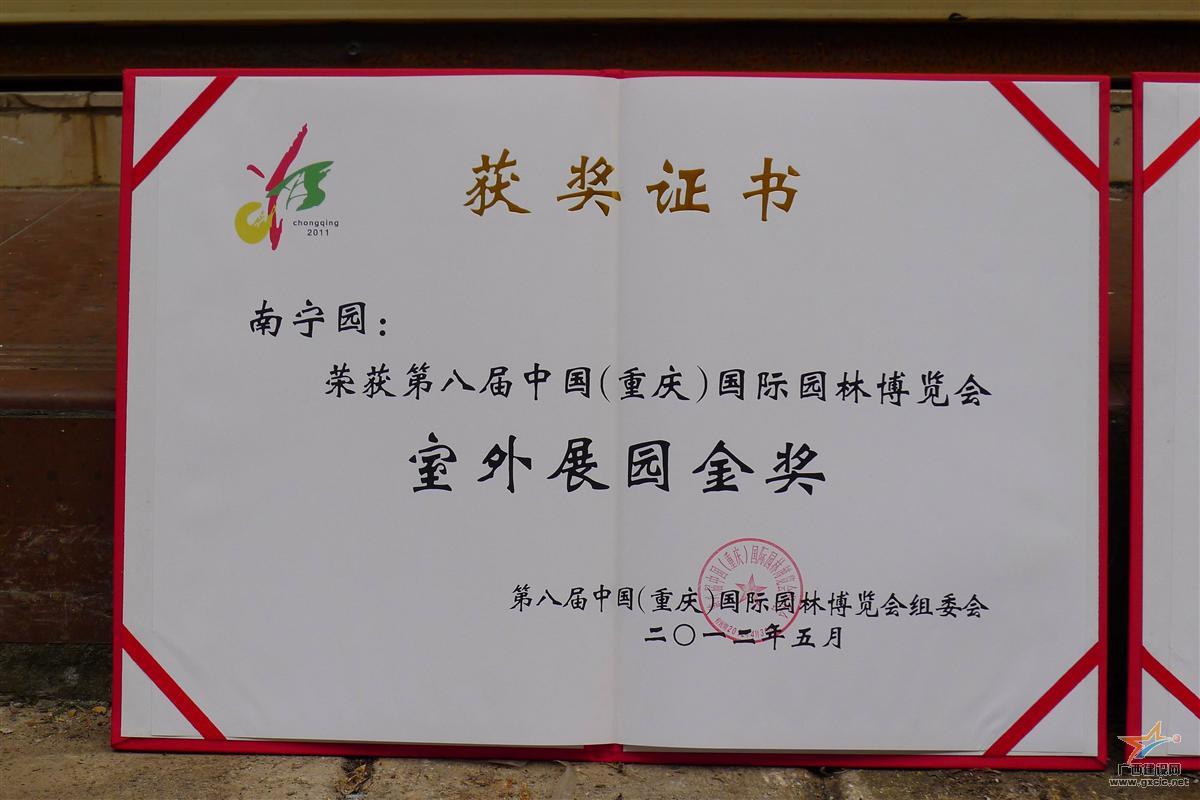 获奖证书
chongqing
2011
南宁园：
荣获第八届中国(重庆)国际园林博览会
室外展园金奖
第八届中国(重庆)国际园林博览会组委会
二〇一二年五月
广西建设网
www.gxcic.net